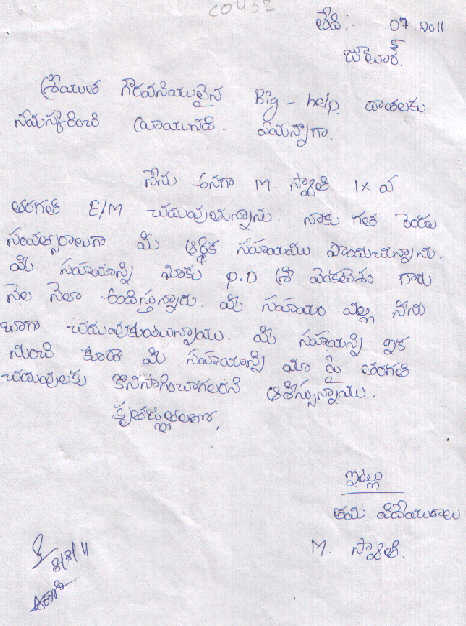 C0432
తేది:- 07 2011
శ్రీయుత గౌరవనీయులైన Big - help దాతలకు
నమస్కరించి వ్రాయునది. ఏమనగా.
నేను అనగా M. స్వాతి IX వ
తరగతి E/M చదువుతున్నాను నాకు గత రెండు
సంవత్సరాలుగా మీ ఆర్థిక సహాయము పొందుచున్నాను.
మీ సహాయాన్ని నాకు P.D శ్రీ గారు
నెల నెలా అందిస్తున్నారు. మీ సహాయం వల్ల నేను
బాగా చదువుకుంటున్నాను. మీ సహాయాన్ని ఇక
నుంచి కూడా మీ సహాయాన్ని మా పై తరగతి
చదువులకు కొనసాగించాలని ఆశిస్తున్నాను.
కృతజ్ఞతలతో,
ఇట్లు
తమ విధేయురాలు
M. స్వాతి.
8/8/11